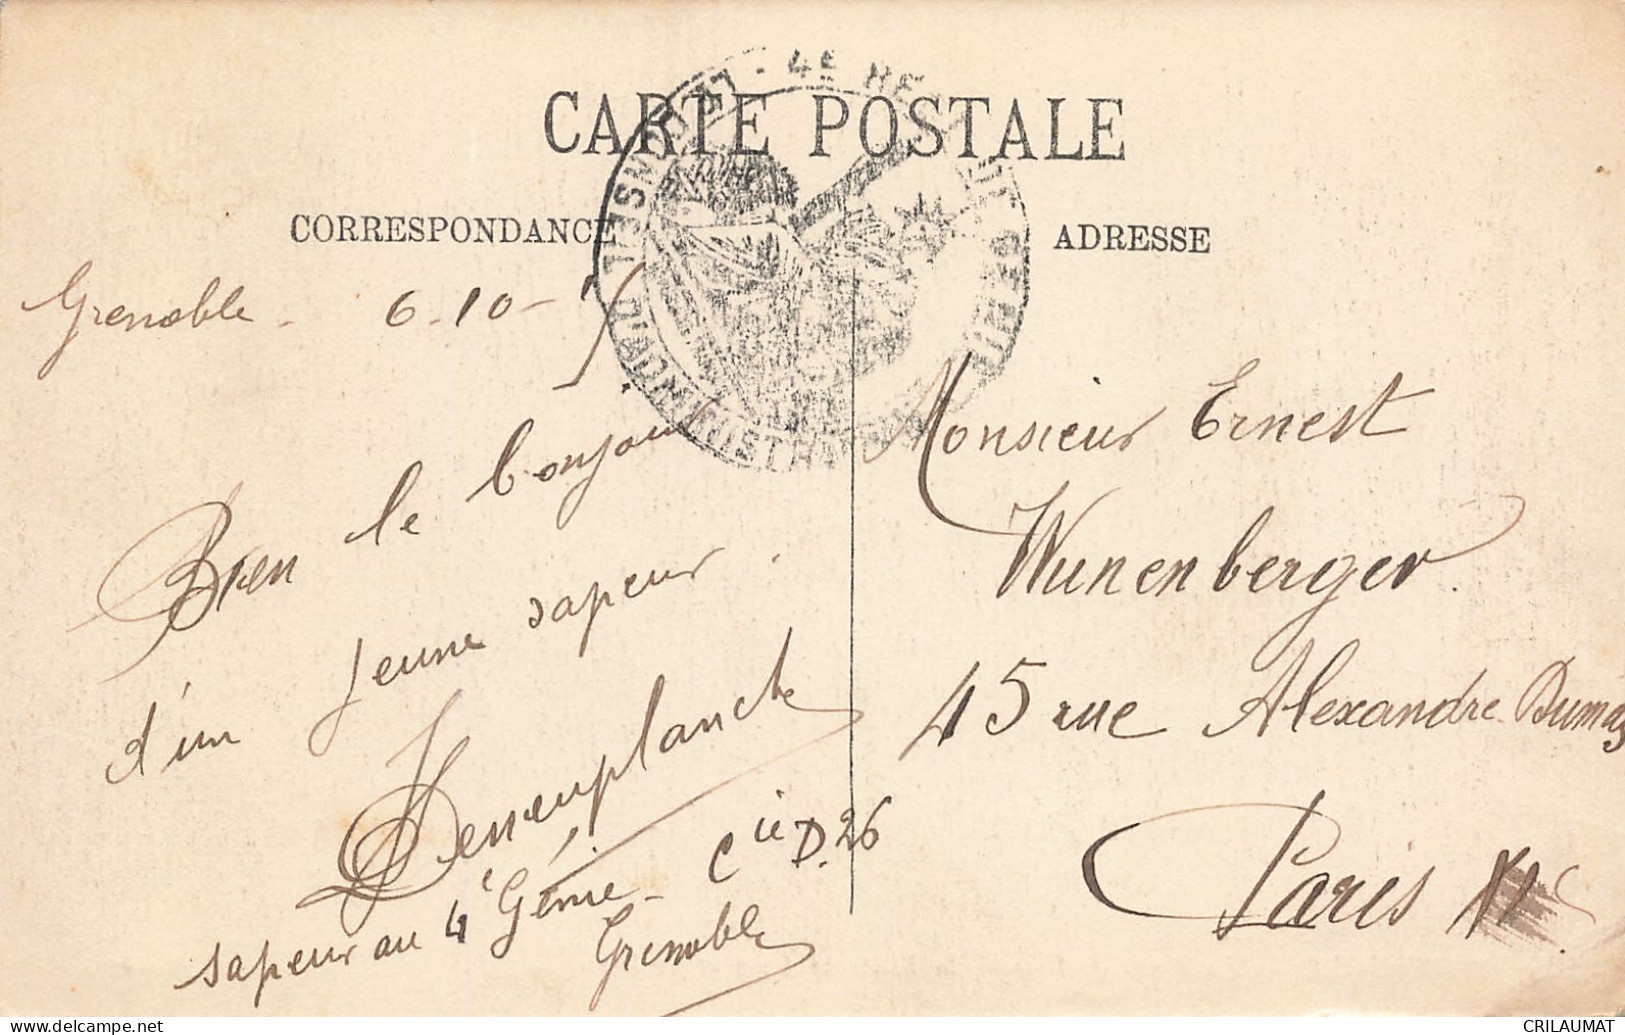 CARTE POSTALE
CORRESPONDANCE
ADRESSE
Grenoble - 6-10-
Bien le bonjour
d'un jeune sapeur.
sapeur au 4e Génie - Cie D.26
Grenoble
Monsieur Ernest
Wunenberger.
45 rue Alexandre Dumas
Paris
4E
CRILAUMAT